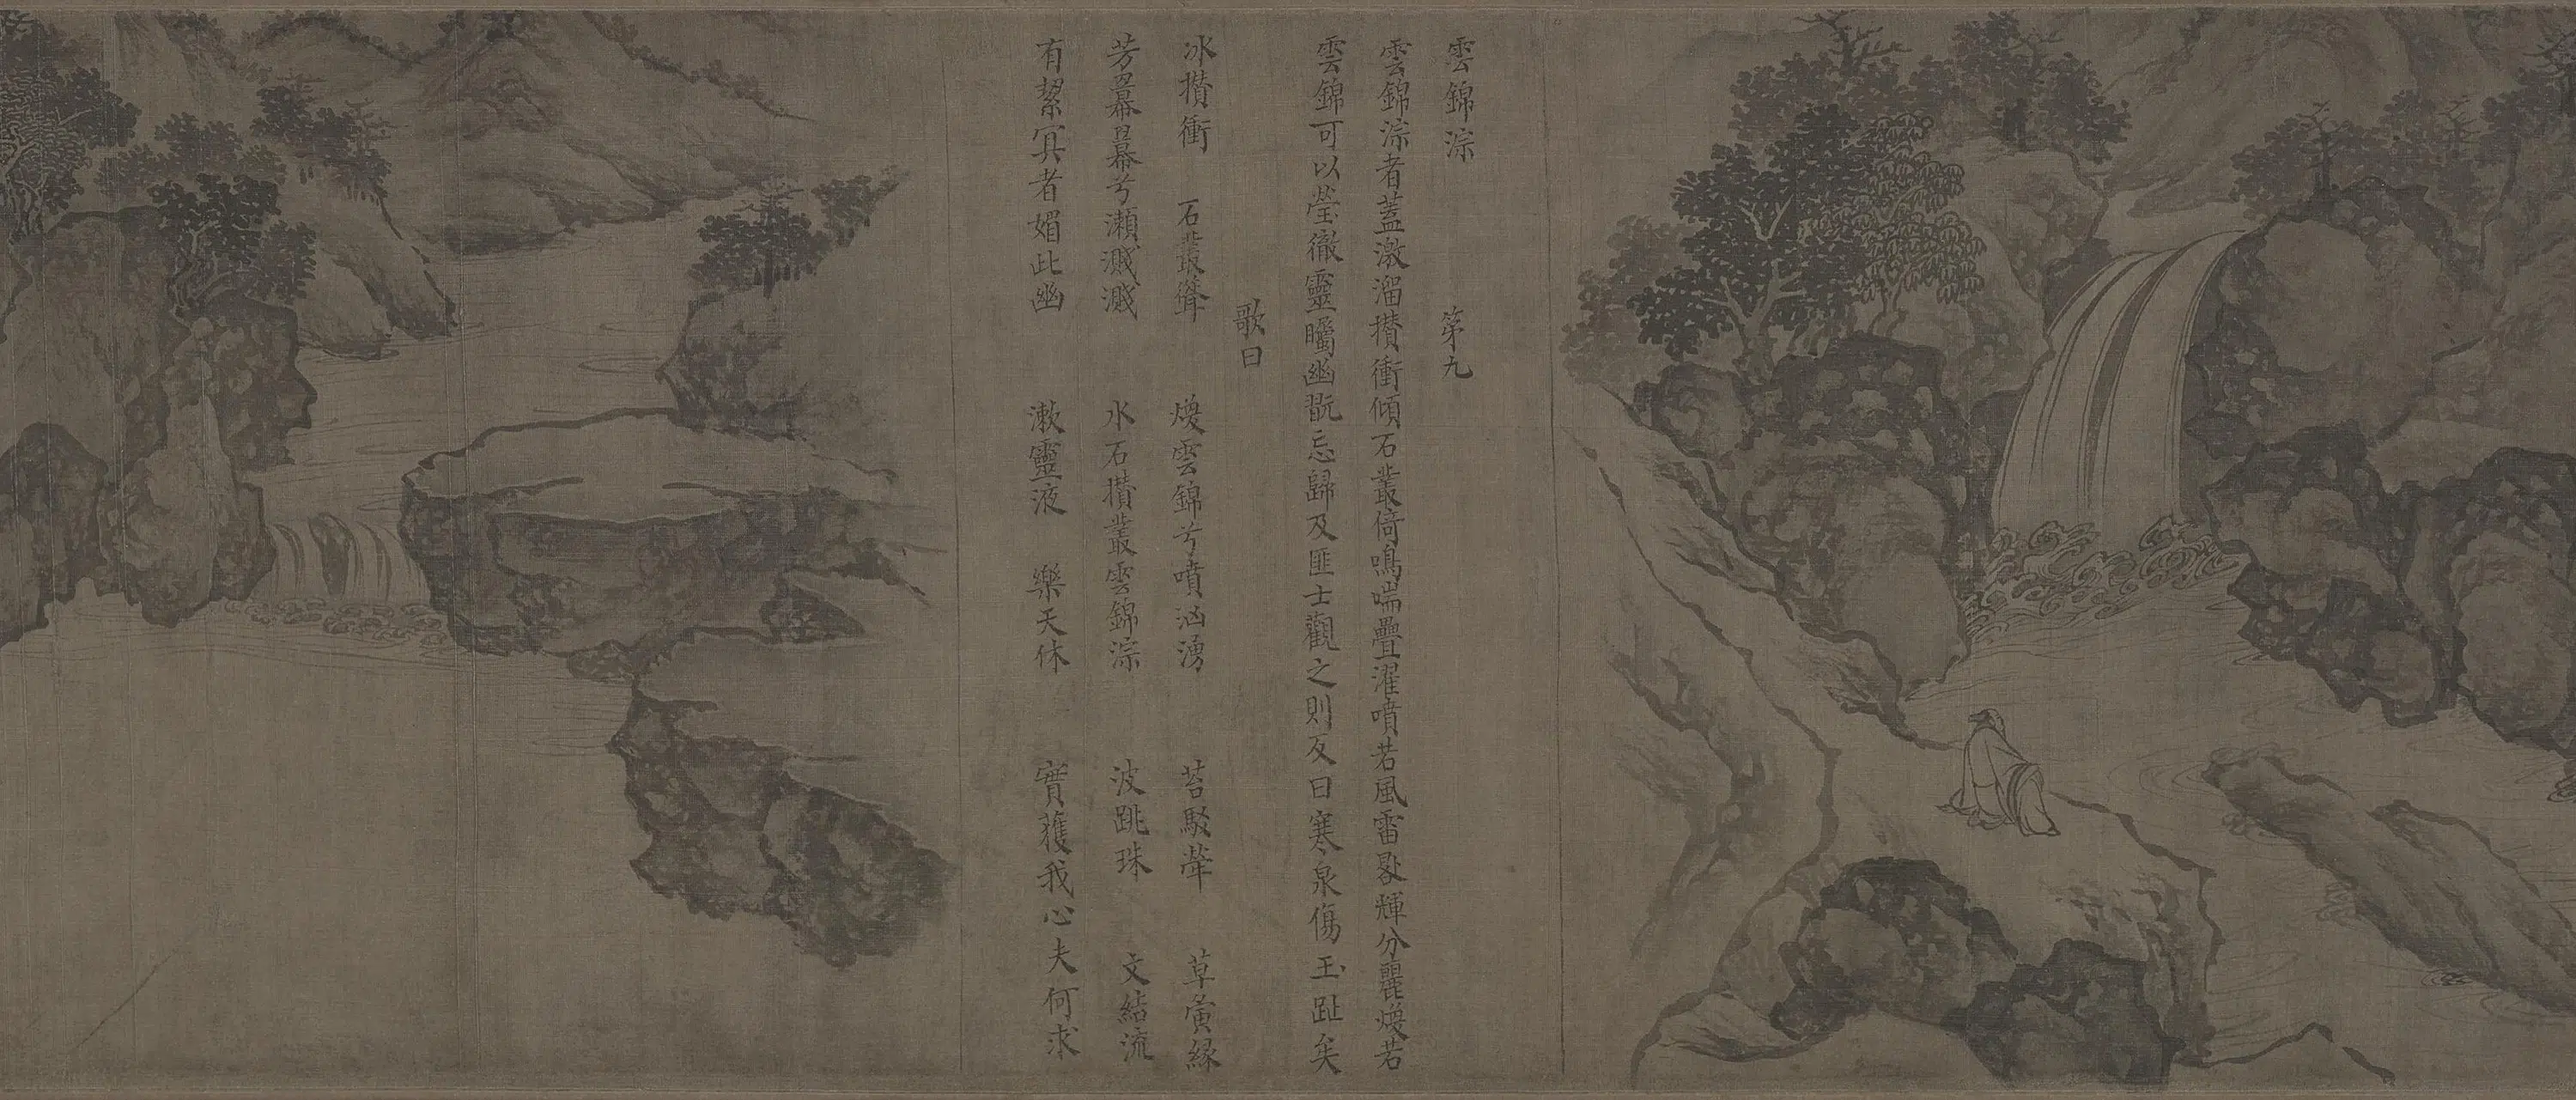 雲錦淙 第九
雲錦淙者蓋激溜攢衝傾石叢倚鳴湍疊濯噴若風雷夛輝分麗煥若
雲錦可以瑩徹靈矚幽翫忘歸及匪士觀之則反曰寒泉傷玉趾矣
歌曰
冰攢衝 石叢聳 煥雲錦兮噴洶湧 苔駮犖 草夤緣
芳羃羃兮瀨濺濺 水石攢叢雲錦淙 波跳珠 文結流
有絜冥者媚此幽 漱靈液 樂天休 實獲我心夫何求